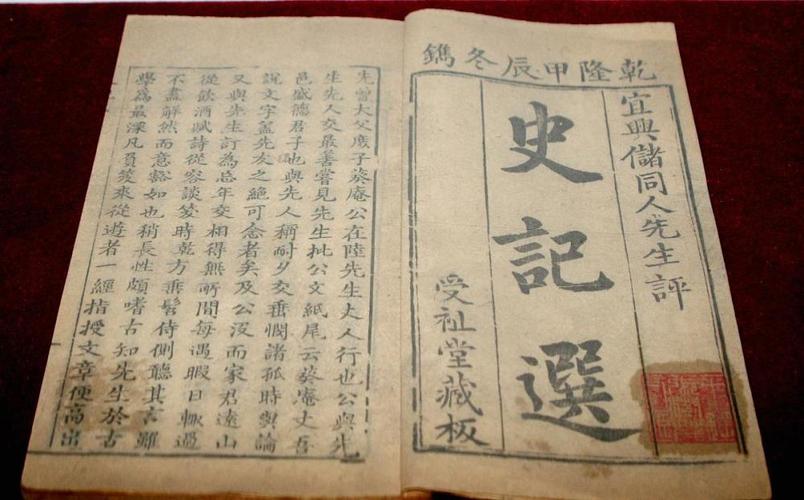 乾隆甲辰冬鐫
宜興儲同人先生評
史記選
受祉堂藏板
先曾大父子葵庵公在陸先生丈人行也公與先
生先人交最善嘗見先生批公文紙尾云葵庵丈吾
邑盛德君子也與先人稱耐夕交垂憫諸孤時與論
說文字蓋先友之絕可念者矣及公沒而家君遠山
又與先生訂為忘年交相得無所間每遇暇日輒過
從飲酒賦詩從容談笑時乾方垂髫侍側聽其言雖
不盡解然而意豁如也稍長性頗嗜古知先生於古
學為最深凡負笈來從遊者一經指授文章便高出